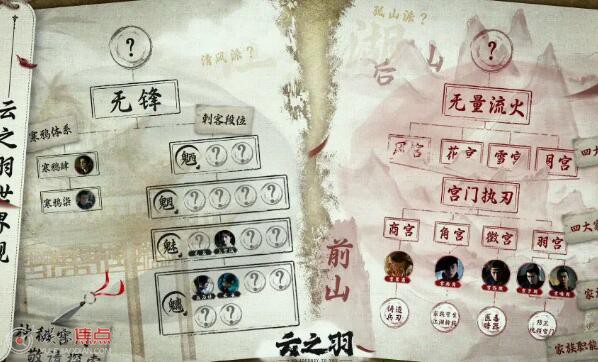 云之羽世界观
清风派？
?
无锋
寒鸦体系
刺客段位
寒鸦肆
寒鸦柒
魑
? ?
魍
? ? ? ?
魅
?
?
魉
? ?
?
孤山派？
后山
?
无量流火
风宫
花宫
雪宫
月宫
宫门执刃
四大
商宫
角宫
徵宫
羽宫
四大家
前山
铸造兵刃
医毒暗器
家族职能
云之羽
焦点
敬请探